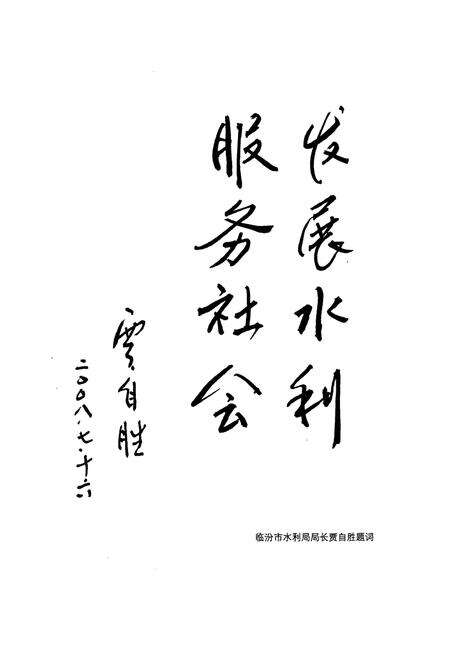 发展水利
服务社会
贾自胜
二〇〇八.七.十六
临汾市水利局局长贾自胜题词